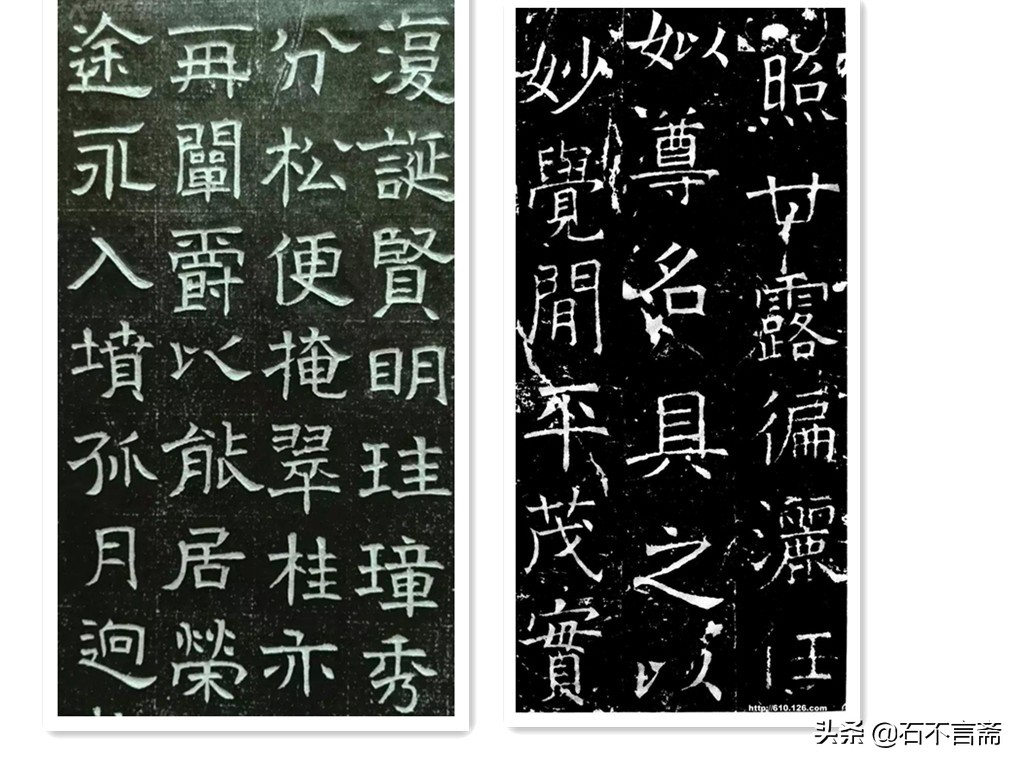 復誕賢明珪璋秀
分松便掩翠桂亦
再闡爵以能居榮
途永入墳孤月逈
照甘露徧灑
姒尊名具之以
妙覺閒平茂實
http://610.126.com
头条 @石不言斋